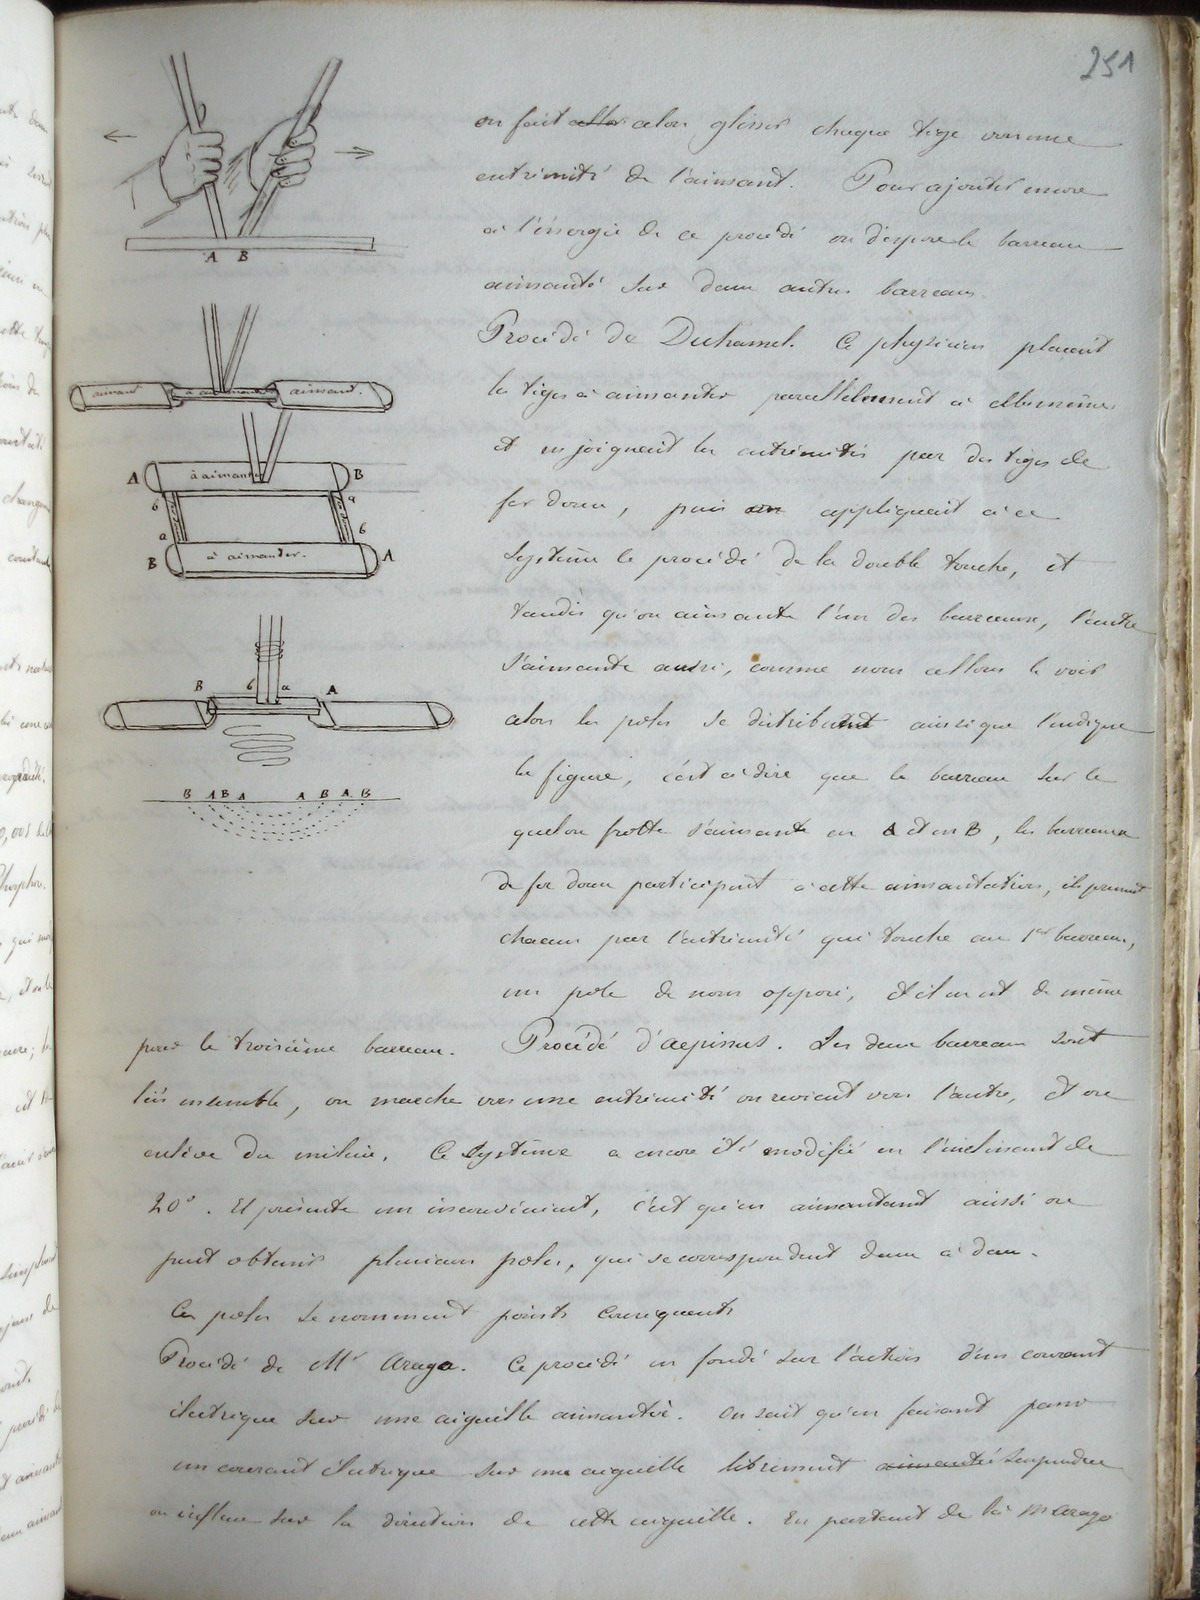 251
on fait aller alors glisser chaque tige vers une
extrémité de l'aimant. Pour ajouter encore
à l'énergie de ce procédé on dispose le barreau
aimanté sur deux autres barreaux.
Procédé de Duhamel. Ce physicien plaçait
les tiges à aimanter parallèlement à elles mêmes
et en joignait les extrémités par des tiges de
fer doux, puis on appliquait à ce
système le procédé de la double touche, et
tandis qu'on aimante l'un des barreaux, l'autre
s'aimante aussi, comme nous allons le voir
alors les pôles se distribuent ainsi que l'indique
la figure, c'est à dire que le barreau sur le
quel on frotte s'aimante en A et en B, les barreaux
de fer doux participent à cette aimantation, ils prennent
chacun par l'extrémité qui touche au 1er barreau,
un pôle de nom opposé, et il en est de même
pour le troisième barreau. Procédé d'Aepinus. Les deux barreaux sont
liés ensemble, on marche vers une extrémité on revient vers l'autre, et on
enlève du milieu. Ce système a encore été modifié en l'inclinant de
20°. Il présente un inconvénient, c'est qu'en aimantant aussi on
peut obtenir plusieurs pôles, qui se correspondent deux à deux.
Ces pôles se nomment points conséquents
Procédé de Mr Arago. Ce procédé est fondé sur l'action d'un courant
électrique sur une aiguille aimantée. On sait qu'en faisant passer
un courant électrique sur une aiguille librement aimantée suspendue
on influe sur la direction de cette aiguille. En partant de là M Arago
A B
aimant à aimanter aimant.
A à aimanter B
b a
a b
B à aimanter. A
B b a A
B A B A A B A B